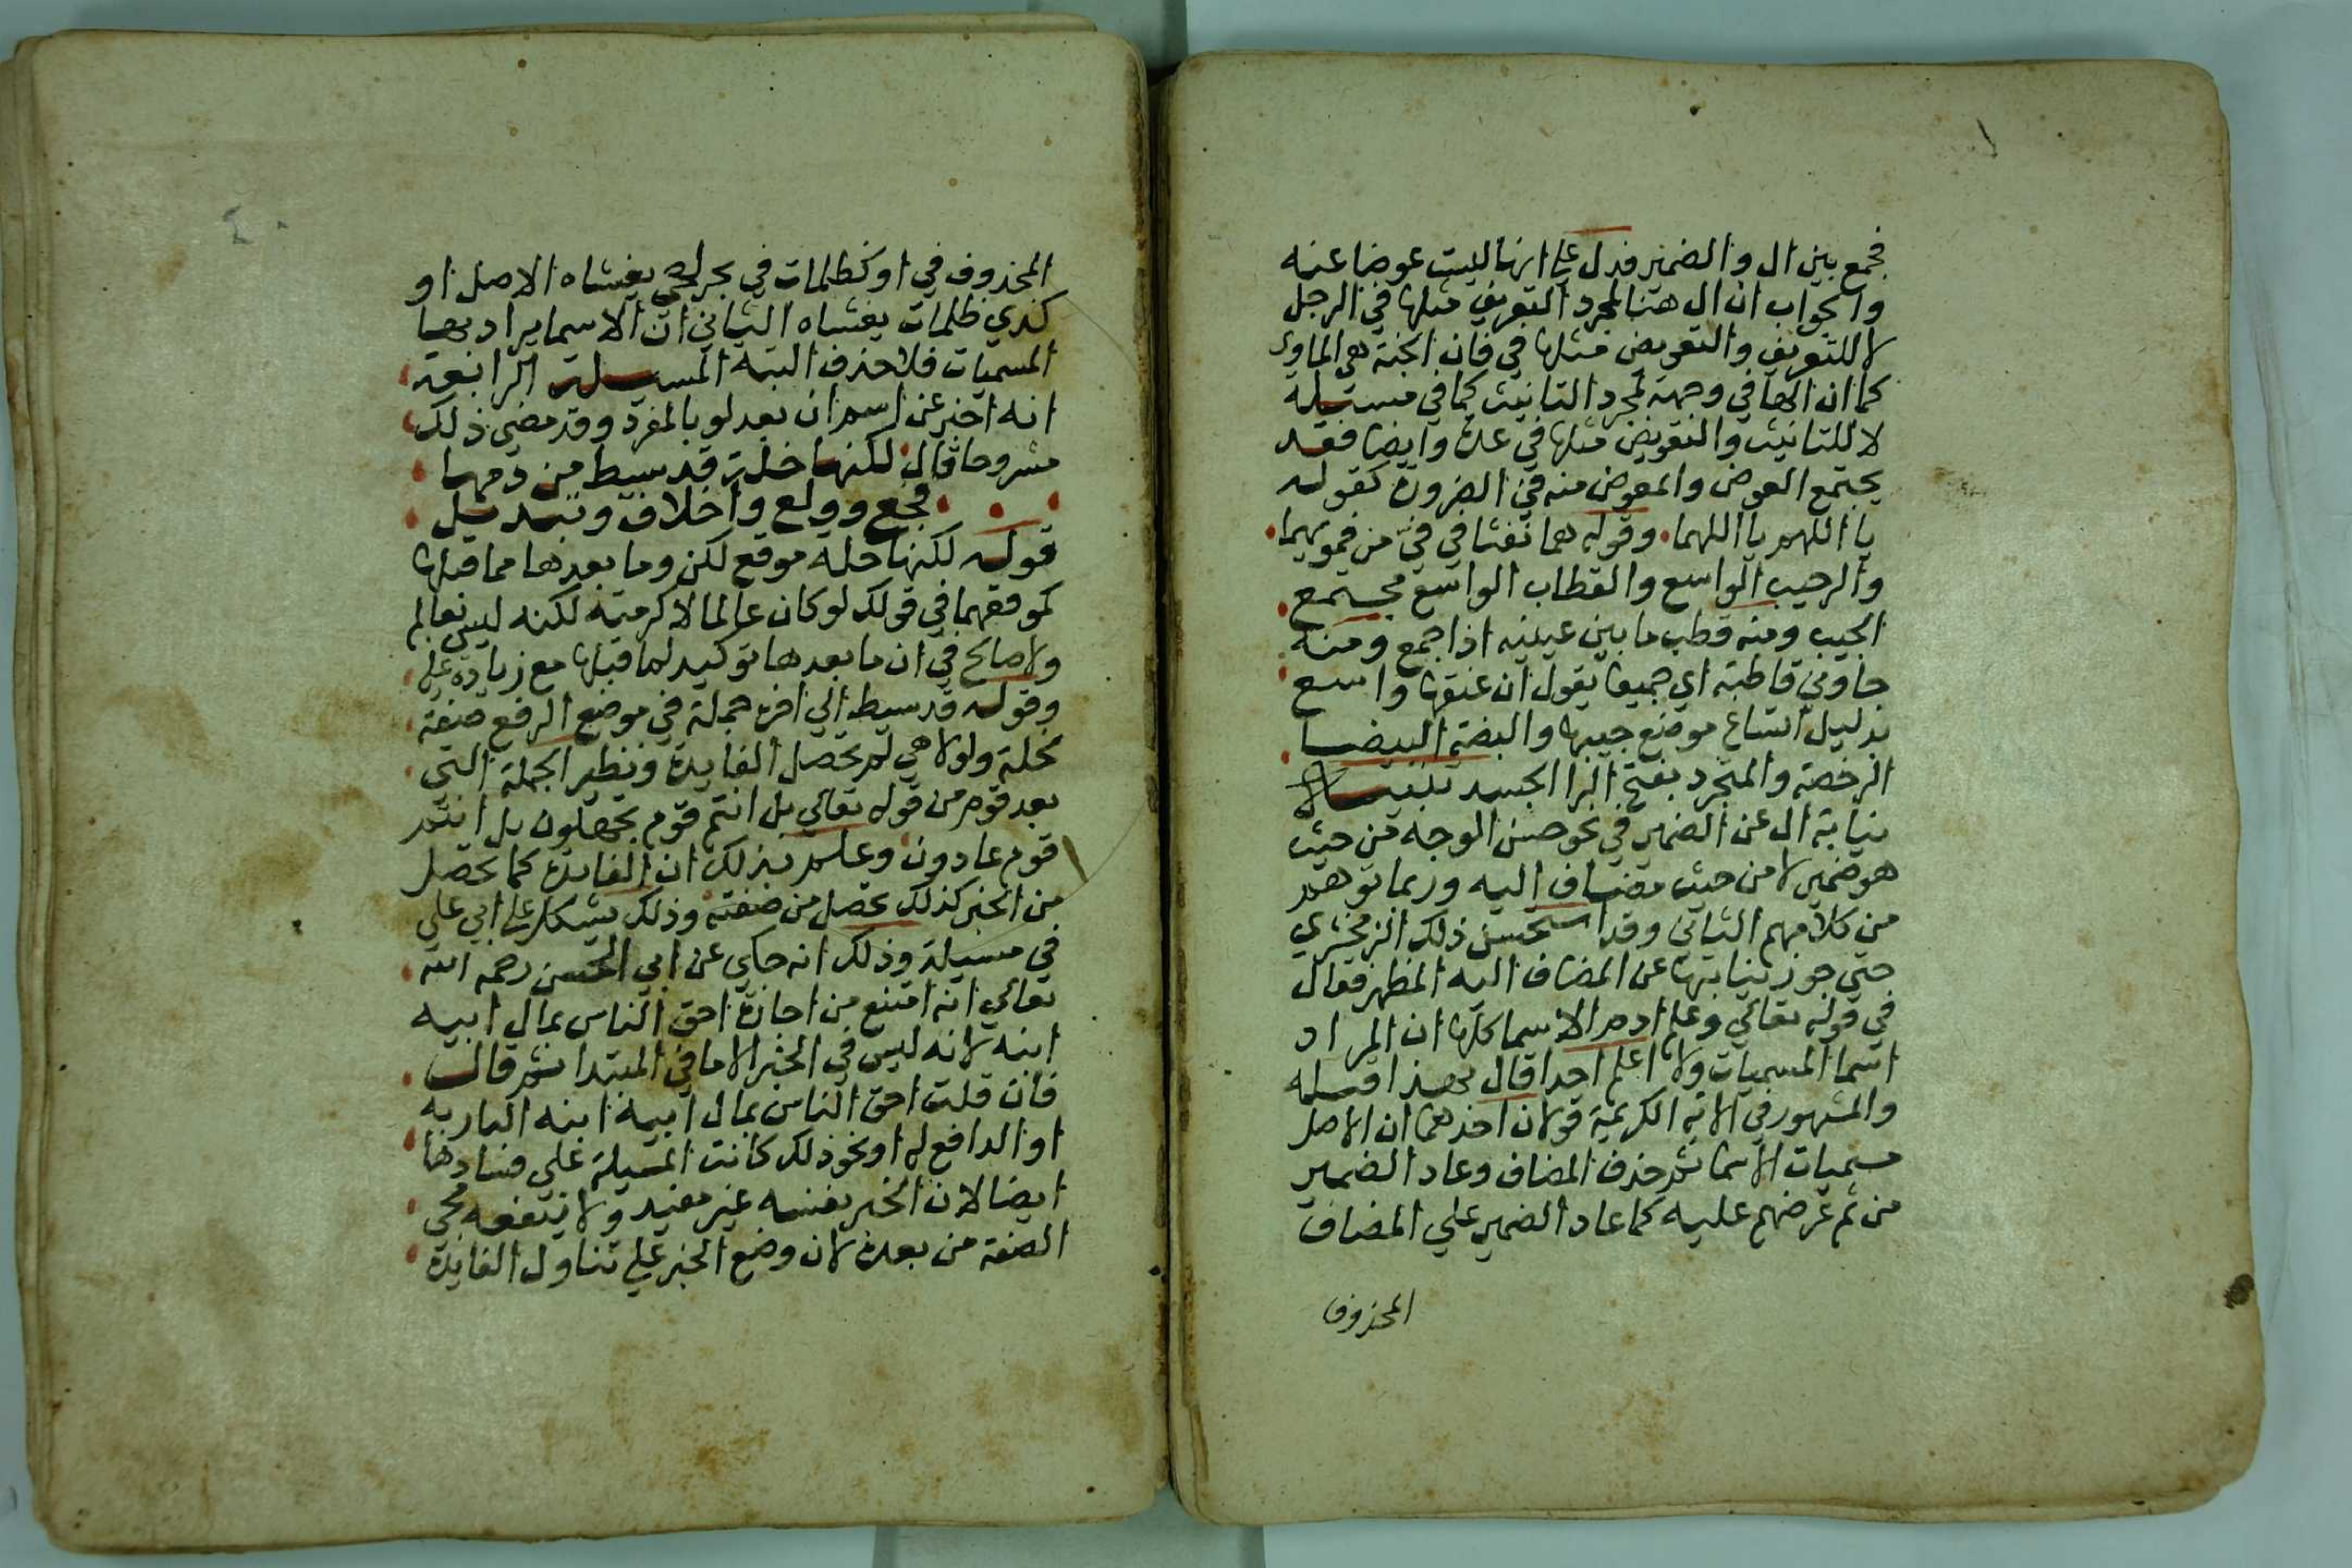 فجمع بين ال والضمير فدل علي انها ليست عوضا عنه
والجواب ان ال هنا لمجرد التعريف مثلها في الرجل
لا للتعريف والتعويض مثلها في فان الجنة هي الماوي
كما ان الها في وجهة لمجرد التانيث كما في مسيلة
لا للتانيث والتعويض مثلها في عدة وايضا فقد
يجتمع العوض والمعوض منه في الضرورة كقوله
يا اللهم يا اللهما وقوله هما نفثا في في من فمويهما
والرحيب الواسع والقطاب الواسع مجتمع
الجيب ومنه قطب ما بين عينيه اذا جمع ومنه
جاوني قاطبة اي جميعا يقول ان عنقها واسع
بدليل اتساع موضع جيبها والبضة البيضا
الرخصة والمتجرد بفتح الرا الجسد تنبيه لا
نيابة ال عن الضمير في نحو حسن الوجه من حيث
هو ضمير لا من حيث مضاف اليه وربما توهم
من كلامهم الثاني وقد استحسن ذلك الزمخشري
حتي جوز نيابتها عن المضاف اليه المظهر فقال
في قوله تعالي وعلم ادم الاسما كلها ان المراد
اسما المسميات ولا اعلم احدا قال بهذا قبله
والمشهور في الاية الكريمة قولان احدهما ان الاصل
مسميات الاسما ثم حذف المضاف وعاد الضمير
من ثم عرضهم عليه كما عاد الضمير علي المضاف
المحذوف
المحذوف في او كظلمات في بحر لجي يغشاه الاصل او
كذي ظلمات يغشاه الثاني ان الاسما يراد بها
المسميات فلا حذف البته المسيلة الرابعة
انه اخبر عن اسم ان بعد لو بالمفرد وقد مضي ذلك
مشروحا قال لكنها خلة قد سيط من دمها
فجع وولع واخلاف وتبديل
قوله لكنها خلة موقع لكن وما بعدها مما قبلها
كموقعهما في قولك لو كان عالما لاكرمته لكنه ليس بعالم
ولا صالح في ان ما بعدها توكيد لما قبلها مع زيادة عليه
وقوله قد سيط الي اخره جملة في موضع الرفع صفة
لخلة ولولا هي لم تحصل الفايدة ونظير الجملة التي
بعد قوم من قوله تعالي بل انتم قوم تجهلون بل انتم
قوم عادون وعلم بذلك ان الفايدة كما تحصل
من الخبر كذلك تحصل من صفته وذلك يشكل علي ابي علي
في مسيلة وذلك انه حكي عن ابي الحسن رحمه الله
تعالي انه امتنع من اجازة احق الناس بمال ابيه
ابنه لانه ليس في الخبر الا ما في المبتدا ثم قال
فان قلت احق الناس بمال ابيه ابنه البار به
او الدافع له او نحو ذلك كانت المسيلة علي فسادها
ايضا لان الخبر بنفسه غير مفيد ولا ينفعه مجي
الصفة من بعده لان وضع الخبر علي تناول الفايدة